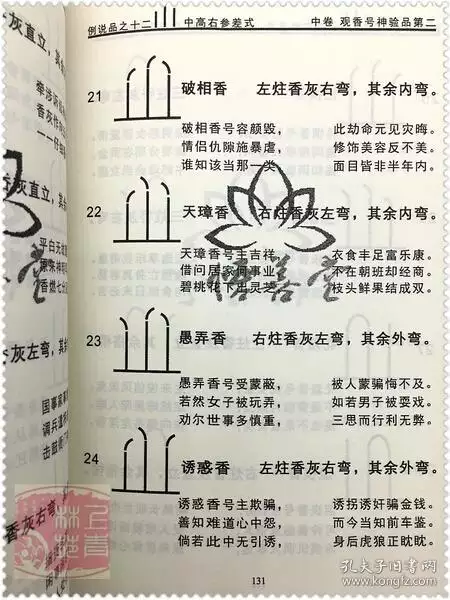 例说品之十二
中高右参差式
中卷 观香号神验品第二
21
破相香 左炷香灰右弯，其余内弯。
破相香号容颜毁， 此劫命元见灾晦。
情侣仇隙施暴虐， 修饰美容反不美。
谁知该当那一类， 面目皆非半年内。
22
天璋香 右炷香灰左弯，其余内弯。
天璋香号主吉祥， 衣食丰足富乐康。
借问居家何事业， 不在朝班却经商。
碧桃花下出灵芝， 枝头鲜果结成双。
23
愚弄香 右炷香灰左弯，其余外弯。
愚弄香号受蒙蔽， 被人蒙骗悔不及。
若然女子被玩弄， 如若男子被耍戏。
劝尔世事多慎重， 三思而行利无弊。
24
诱惑香 左炷香灰右弯，其余外弯。
诱惑香号主欺骗， 诱拐诱奸骗金钱。
善知难道心中怨， 而今当知前车鉴。
倘若此中无引诱， 身后虎狼正眈眈。
131
灰直立，
牵涉
香灰作
灰直立，其
平白无
香燃七分
灰左弯，其
国事家
调兵遣
击鼓
香灰右弯，
悟善堂
孔夫子旧书网
www.kongfz.com